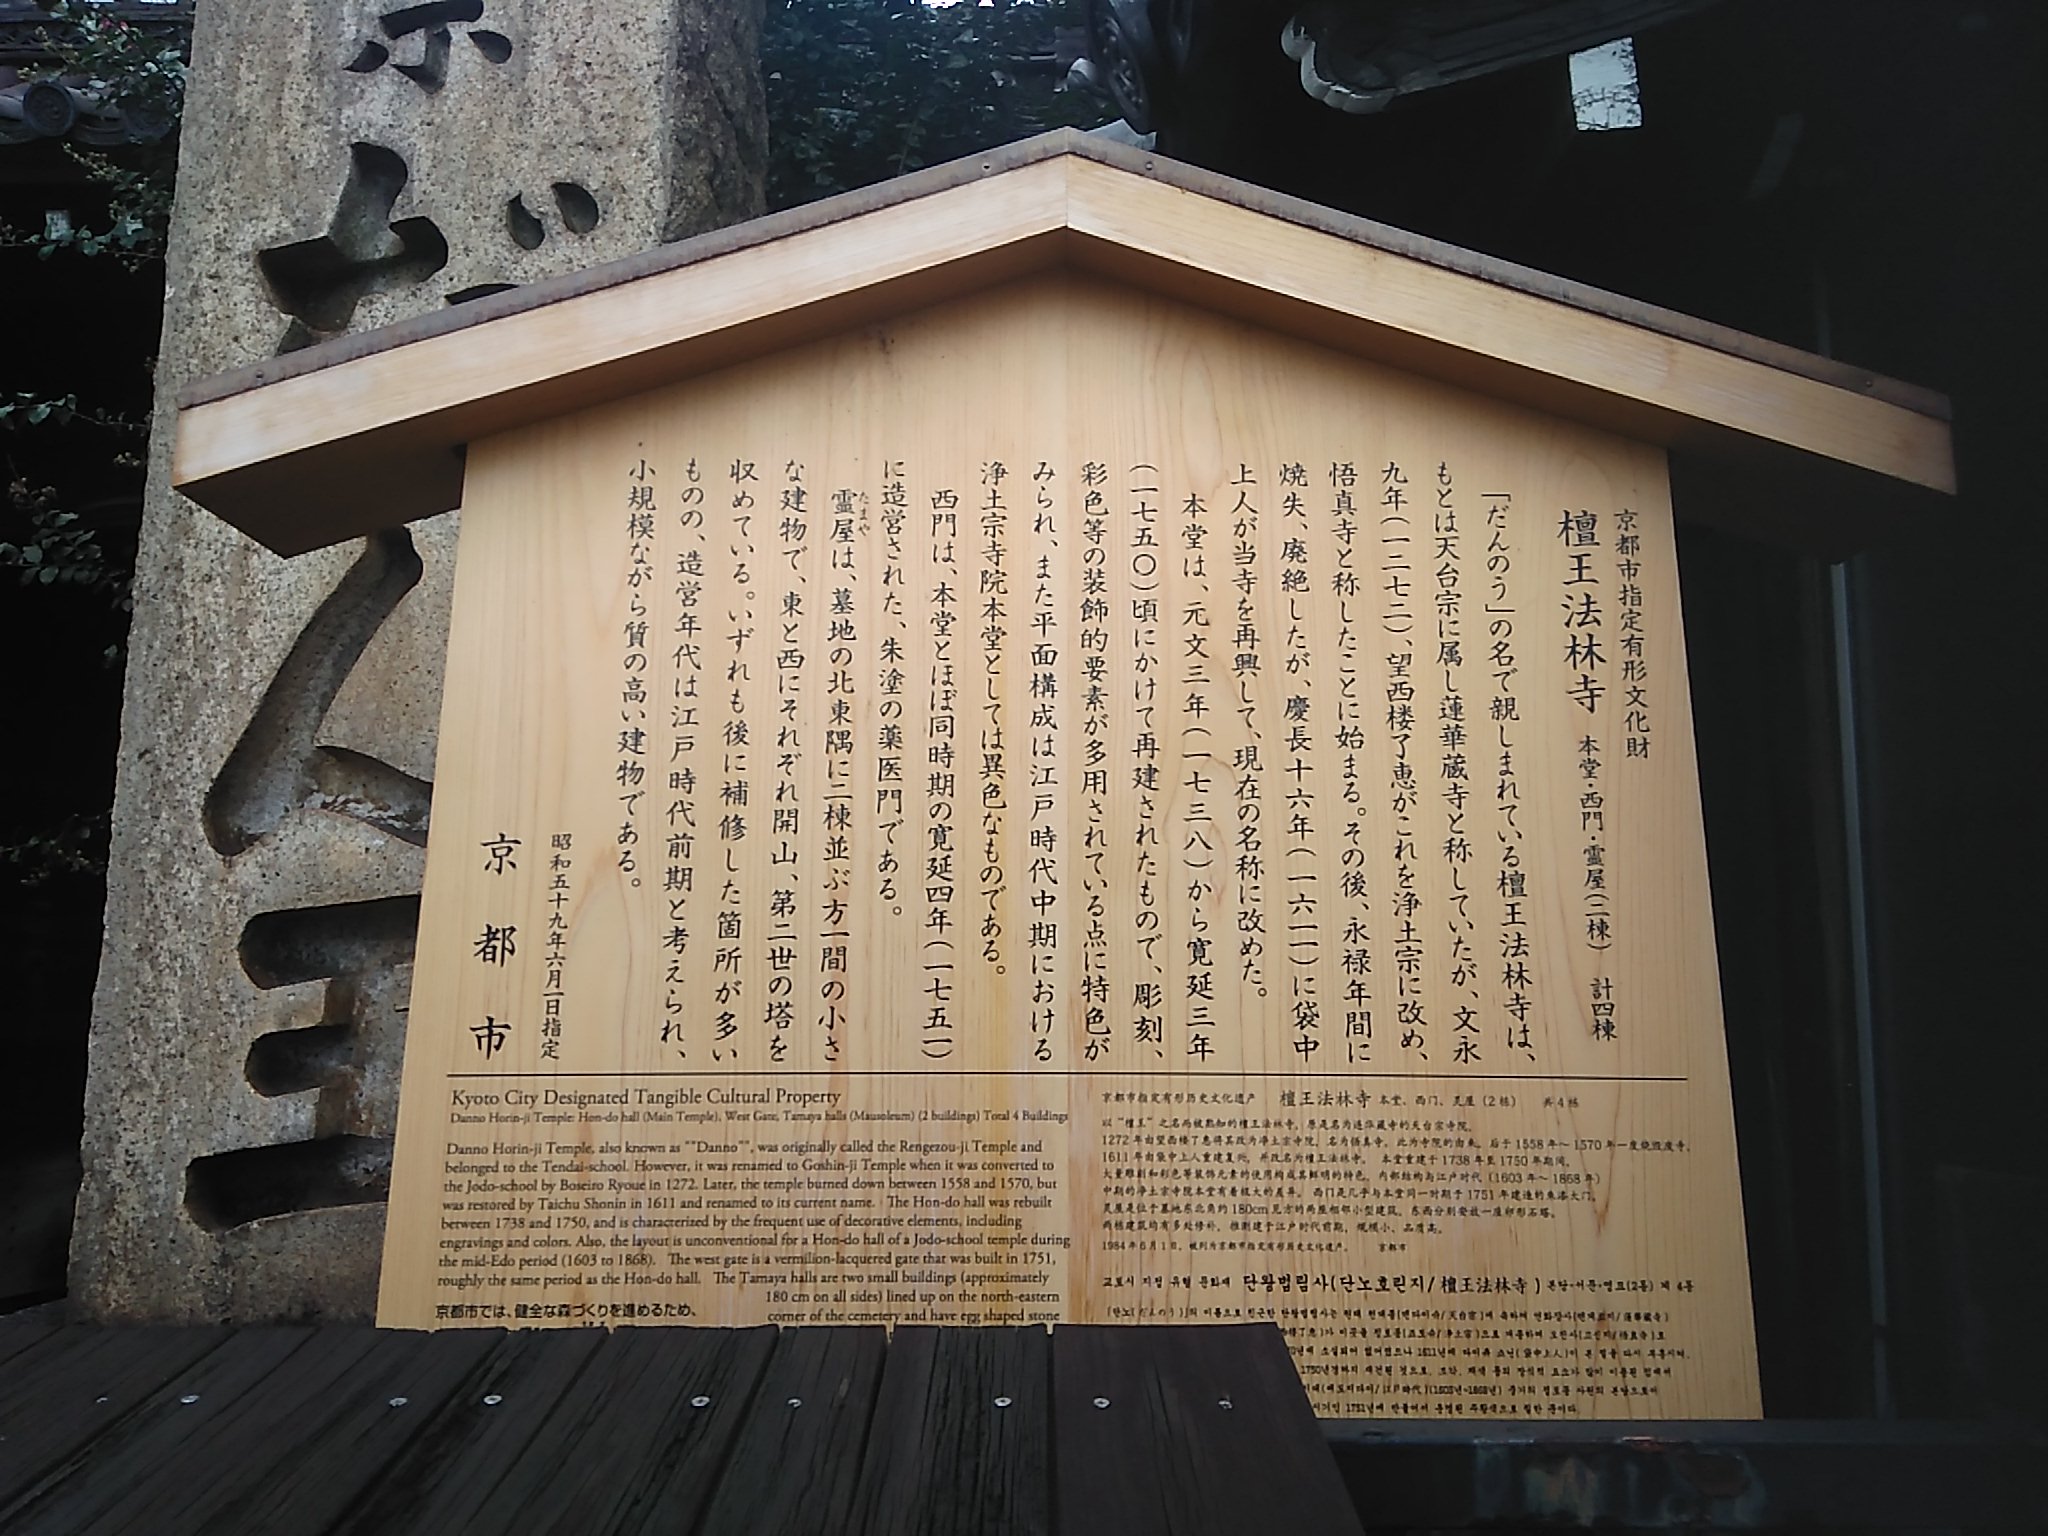 京都市指定有形文化財
檀王法林寺 本堂・西門・霊屋(二棟) 計四棟
「だんのう」の名で親しまれている檀王法林寺は、
もとは天台宗に属し蓮華蔵寺と称していたが、文永
九年(一二七二)、望西楼了恵がこれを浄土宗に改め、
悟真寺と称したことに始まる。その後、永禄年間に
焼失、廃絶したが、慶長十六年(一六一一)に袋中
上人が当寺を再興して、現在の名称に改めた。
本堂は、元文三年(一七三八)から寛延三年
(一七五〇)頃にかけて再建されたもので、彫刻、
彩色等の装飾的要素が多用されている点に特色が
みられ、また平面構成は江戸時代中期における
浄土宗寺院本堂としては異色なものである。
西門は、本堂とほぼ同時期の寛延四年(一七五一)
に造営された、朱塗の薬医門である。
霊屋たまやは、墓地の北東隅に二棟並ぶ方一間の小さ
な建物で、東と西にそれぞれ開山、第二世の塔を
収めている。いずれも後に補修した箇所が多い
ものの、造営年代は江戸時代前期と考えられ、
小規模ながら質の高い建物である。
昭和五十九年六月一日指定
京都市
Kyoto City Designated Tangible Cultural Property
Danno Horin-ji Temple: Hon-do hall (Main Temple), West Gate, Tamaya halls (Mausoleum) (2 buildings) Total 4 Buildings
Danno Horin-ji Temple, also known as ""Danno"", was originally called the Rengezou-ji Temple and
belonged to the Tendai-school. However, it was renamed to Goshin-ji Temple when it was converted to
the Jodo-school by Boseiro Ryoue in 1272. Later, the temple burned down between 1558 and 1570, but
was restored by Taichu Shonin in 1611 and renamed to its current name. The Hon-do hall was rebuilt
between 1738 and 1750, and is characterized by the frequent use of decorative elements, including
engravings and colors. Also, the layout is unconventional for a Hon-do hall of a Jodo-school temple during
the mid-Edo period (1603 to 1868). The west gate is a vermilion-lacquered gate that was built in 1751,
roughly the same period as the Hon-do hall. The Tamaya halls are two small buildings (approximately
180 cm on all sides) lined up on the north-eastern
corner of the cemetery and have egg shaped stone
京都市では、健全な森づくりを進めるため、
京都市指定有形历史文化遗产 檀王法林寺 本堂、西门、灵屋(2栋) 共4栋
以"檀王"之名而被熟知的檀王法林寺，原是名为莲华藏寺的天台宗寺院。
1272年由望西楼了惠将其改为净土宗寺院，名为悟真寺。此为寺院的由来。后于1558年～1570年一度烧毁废寺，
1611年由袋中上人重建复兴，并改名为檀王法林寺。 本堂重建于1738年至1750年期间，
大量雕刻和彩色等装饰元素的使用构成其鲜明的特色，内部结构与江户时代（1603年～1868年）
中期的净土宗寺院本堂有着极大的差异。 西门是几乎与本堂同一时期于1751年建造的朱漆大门。
灵屋是位于墓地东北角约180cm见方的两座相邻小型建筑，东西分别安放一座卵形石塔。
两栋建筑均有多处修补，推测建于江户时代前期，规模小、品质高。
1984年6月1日，被列为京都市指定有形历史文化遗产。 京都市
교토시 지정 유형 문화재 단왕법림사(단노호린지/檀王法林寺) 본당·서문·영묘(2동) 제 4동